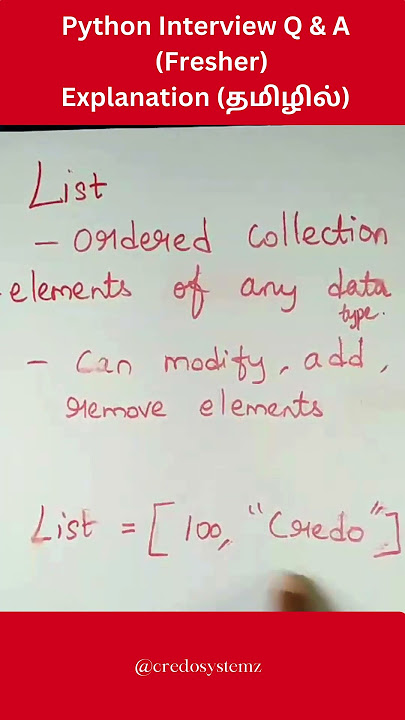 Python Interview Q & A
(Fresher)
Explanation (தமிழில்)
List
- ordered collection
- elements of any data
type.
- can modify, add,
remove elements
List = [100, "Credo"]
@credosystemz